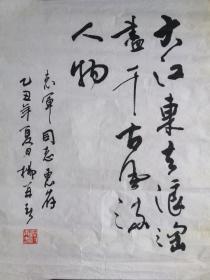 大江東去浪淘
盡千古風流
人物
志軍同志惠存
乙丑年夏日楊